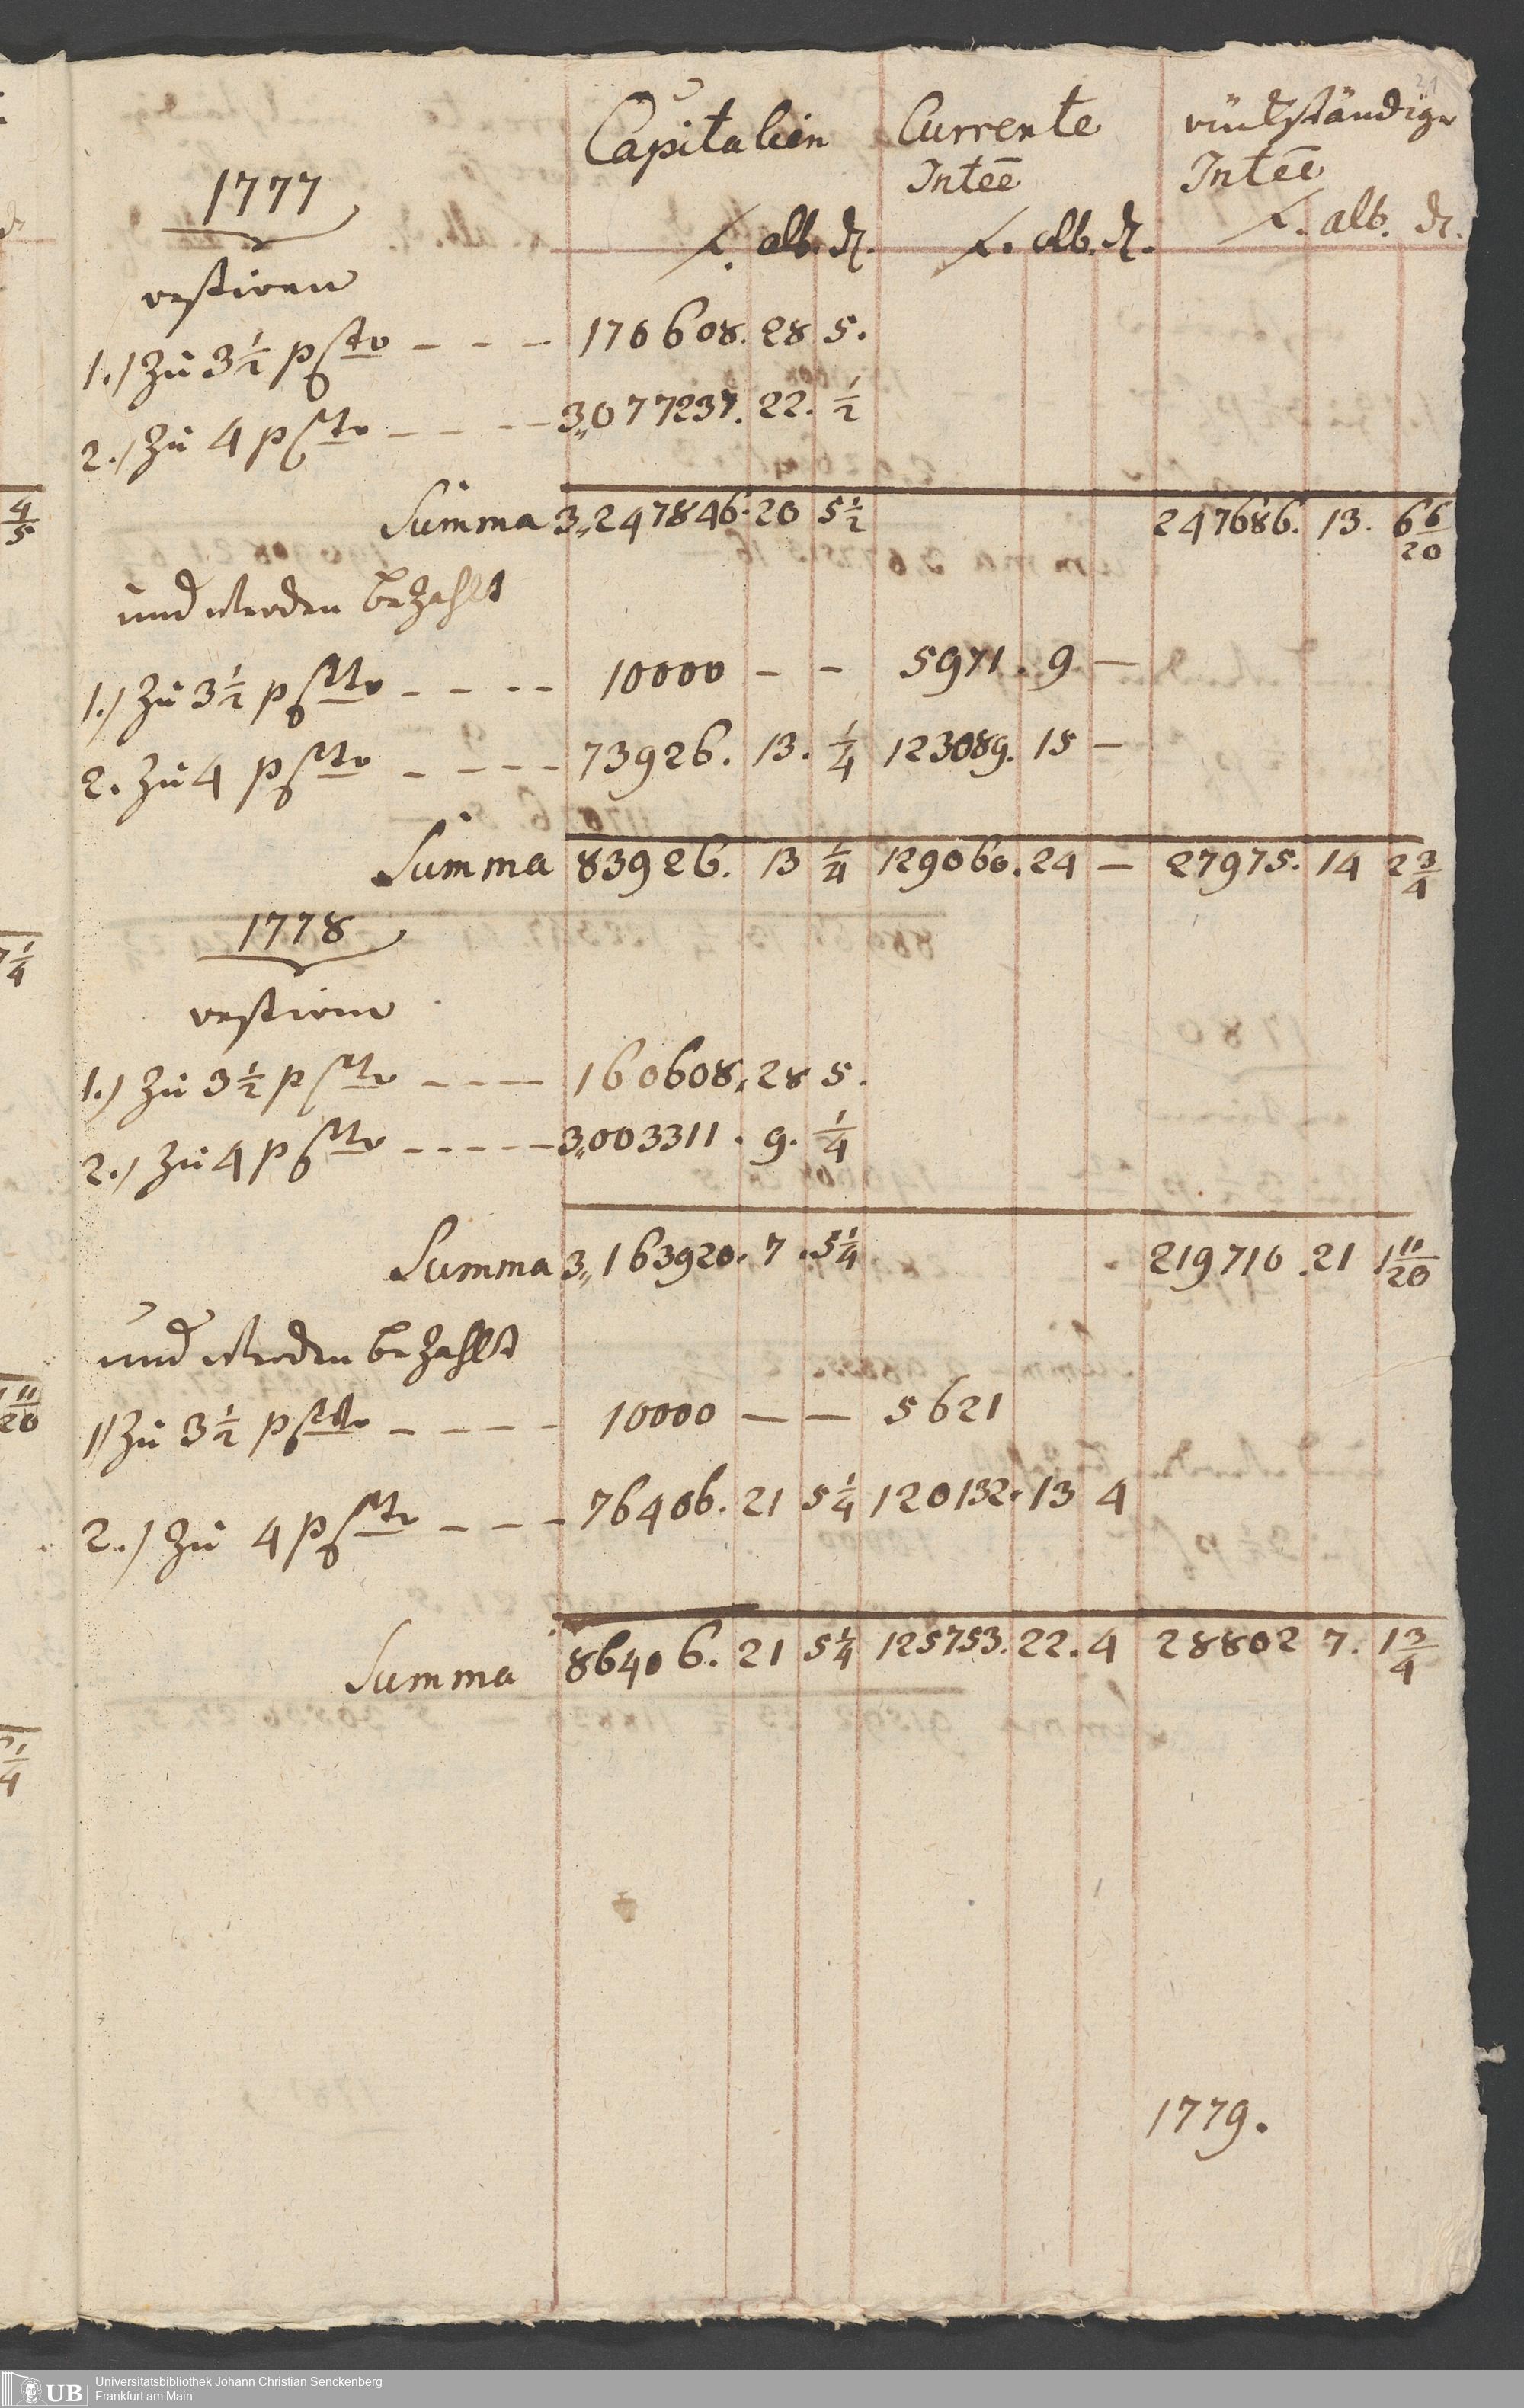 Capitalien Currente rückständige
Inteē Inteē
1777
f. alb. d. f. alb. d. f. alb. d.
restiren
1.) Zu 3 1/2 p Cto - - - 170608. 28 5.
2.) Zu 4 p Cto - - - - 3,,077237. 22. 1/2
Summa 3,,247846. 20 5 1/2 247686. 13. 6 6/20
und werden bezahlt
1.) Zu 3 1/2 p Cto - - - - 10000 - - 5971. 9 -
2. Zu 4 p Cto - - - - 73926. 13. 1/4 123089. 15 -
Summa 83926. 13 1/4 129060. 24 - 27975. 14 2 3/4
1778
restiren
1.) Zu 3 1/2 p Cto - - - - 160608. 28 5.
2.) Zu 4 p Cto - - - - - 3,,003311. 9. 1/4
Summa 3,,163920. 7. 5 1/4 219710. 21 1 11/20
und werden bezahlt
1) Zu 3 1/2 p Cto - - - - 10000 - - 5621
2.) Zu 4 p Cto - - - - 76406. 21 5 1/4 120132. 13 4
Summa 86406. 21 5 1/4 125753. 22. 4 28802 7. 1 3/4
1779.
UB Universitätsbibliothek Johann Christian Senckenberg
Frankfurt am Main